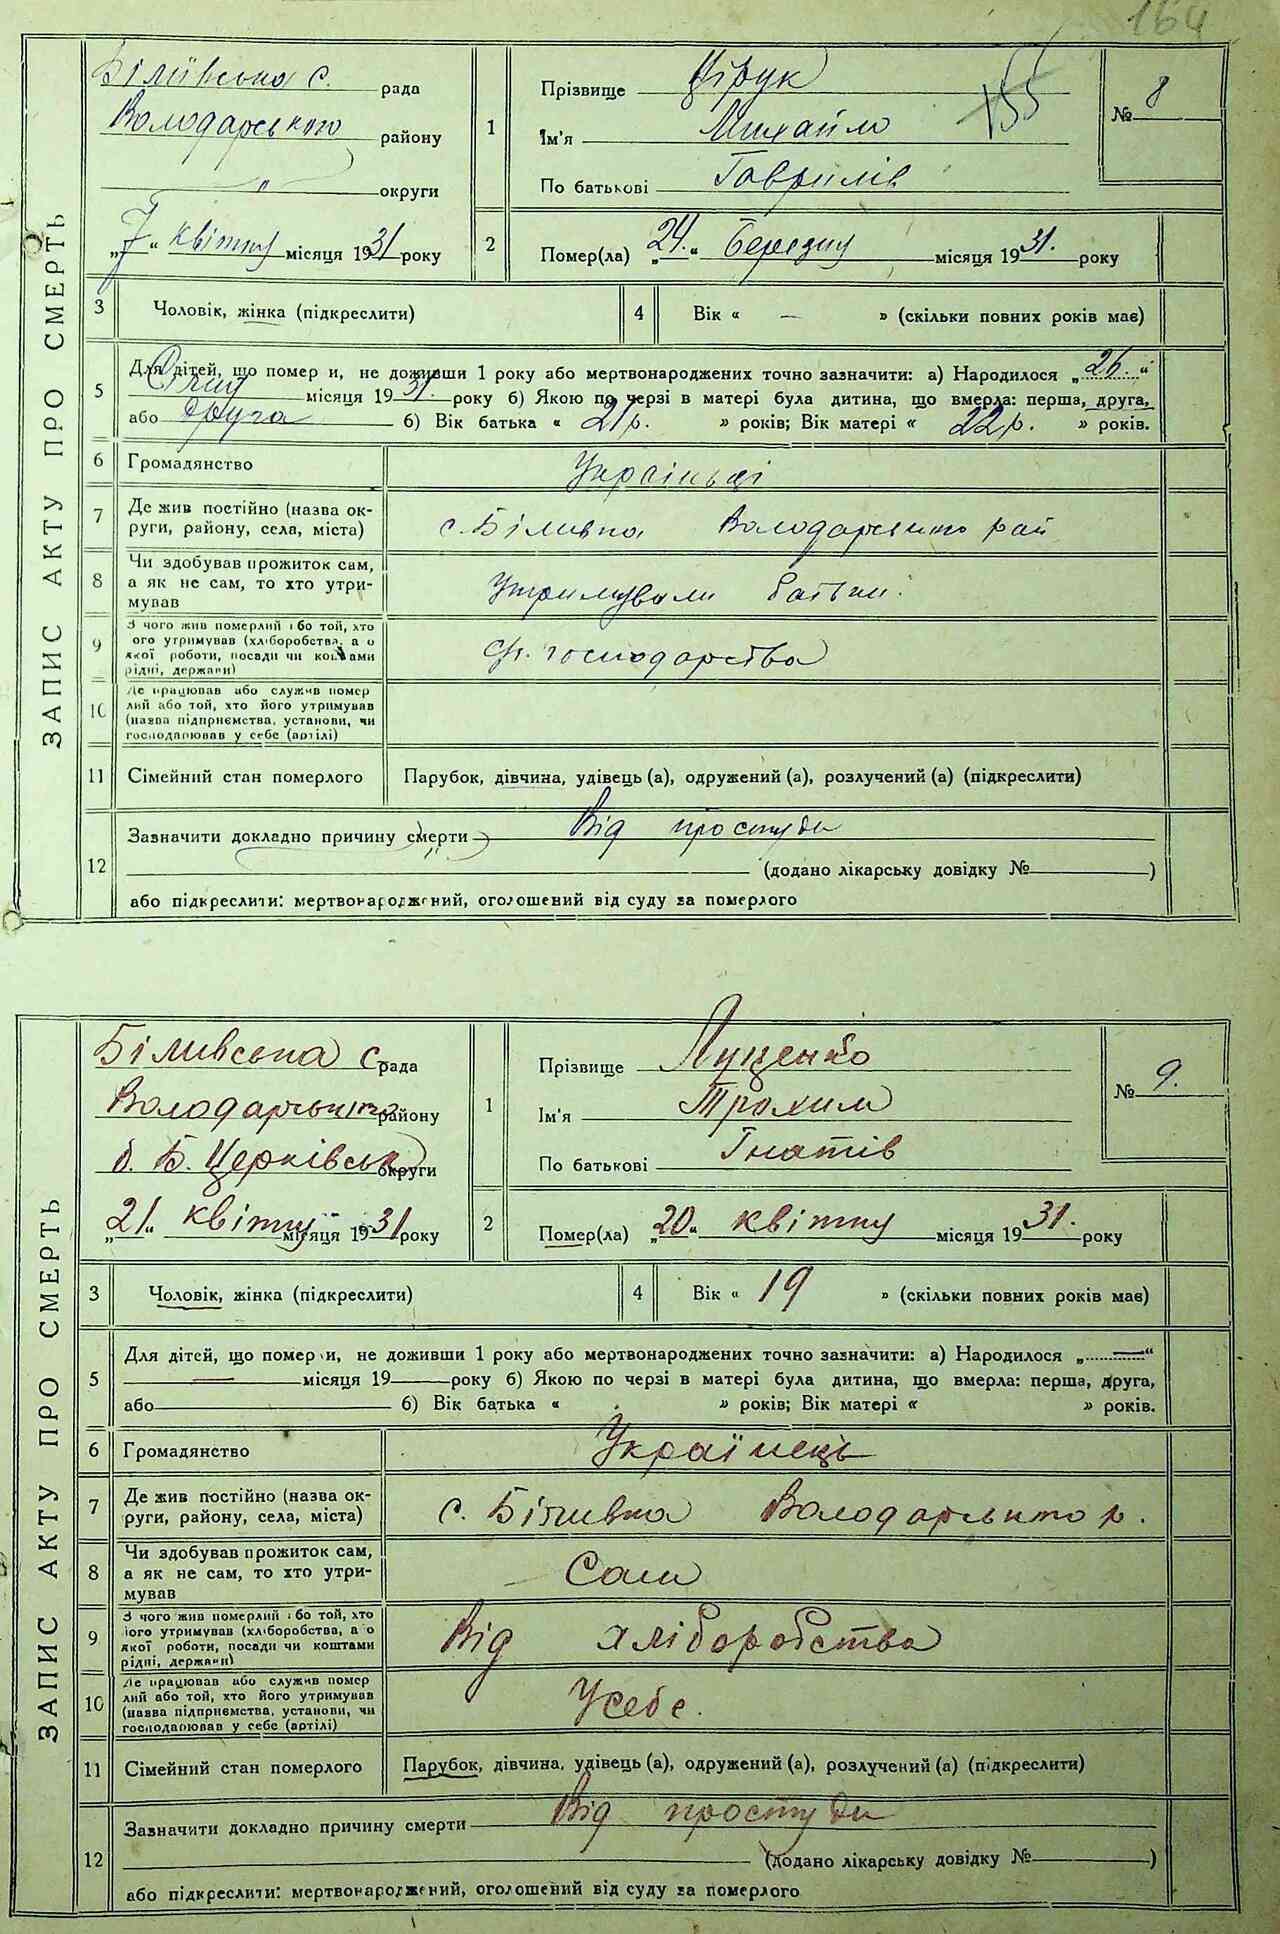 164
ЗАПИС АКТУ ПРО СМЕРТЬ
Біліївська с. рада
Володарського району
" округи
„7“ квітня місяця 1931 року
1
Прізвище Цірук
Ім'я Михайло
По батькові Гаврилів
155
№ 8
2
Помер(ла) „24.“ березня місяця 1931. року
3 Чоловік, жінка (підкреслити)
4 Вік « — » (скільки повних років має)
5 Для дітей, що померли, не доживши 1 року або мертвонароджених точно зазначити: а) Народилося „26.“
Січня місяця 1931. року б) Якою по черзі в матері була дитина, що вмерла: перша, друга,
або друга б) Вік батька « 21 р. » років; Вік матері « 22 р. » років.
6 Громадянство Українці
7 Де жив постійно (назва ок-
руги, району, села, міста) с. Біливка Володарського рай
8 Чи здобував прожиток сам,
а як не сам, то хто утри-
мував утримували батьки.
9 З чого жив померлий або той, хто
його утримував (хліборобства, а о
якої роботи, посади чи коштами
рідні, держави) с/г. господарства
10 Де працював або служив помер
лий або той, хто його утримував
(назва підприємства, установи, чи
господарював у себе (артілі)
11 Сімейний стан померлого Парубок, дівчина, удівець (а), одружений (а), розлучений (а) (підкреслити)
12 Зазначити докладно причину смерти Від простуди
(додано лікарську довідку № )
або підкреслити: мертвонароджений, оголошений від суду за померлого
ЗАПИС АКТУ ПРО СМЕРТЬ
Біливська с. рада
Володарського району
б. Б. Церківськ округи
„21“ квітня місяця 1931 року
1
Прізвище Луценко
Ім'я Трохим
По батькові Гнатів
№ 9.
2
Помер(ла) „20“ квітня місяця 1931. року
3 Чоловік, жінка (підкреслити)
4 Вік « 19 » (скільки повних років має)
5 Для дітей, що померли, не доживши 1 року або мертвонароджених точно зазначити: а) Народилося „—“
— місяця 19 року б) Якою по черзі в матері була дитина, що вмерла: перша, друга,
або б) Вік батька « » років; Вік матері « » років.
6 Громадянство Українець
7 Де жив постійно (назва ок-
руги, району, села, міста) с. Біливка Володарського р.
8 Чи здобував прожиток сам,
а як не сам, то хто утри-
мував Сам
9 З чого жив померлий або той, хто
його утримував (хліборобства, а о
якої роботи, посади чи коштами
рідні, держави) Від хліборобства
10 Де працював або служив помер
лий або той, хто його утримував
(назва підприємства, установи, чи
господарював у себе (артілі) У себе.
11 Сімейний стан померлого Парубок, дівчина, удівець (а), одружений (а), розлучений (а) (підкреслити)
12 Зазначити докладно причину смерти Від простуди
(додано лікарську довідку № )
або підкреслити: мертвонароджений, оголошений від суду за померлого